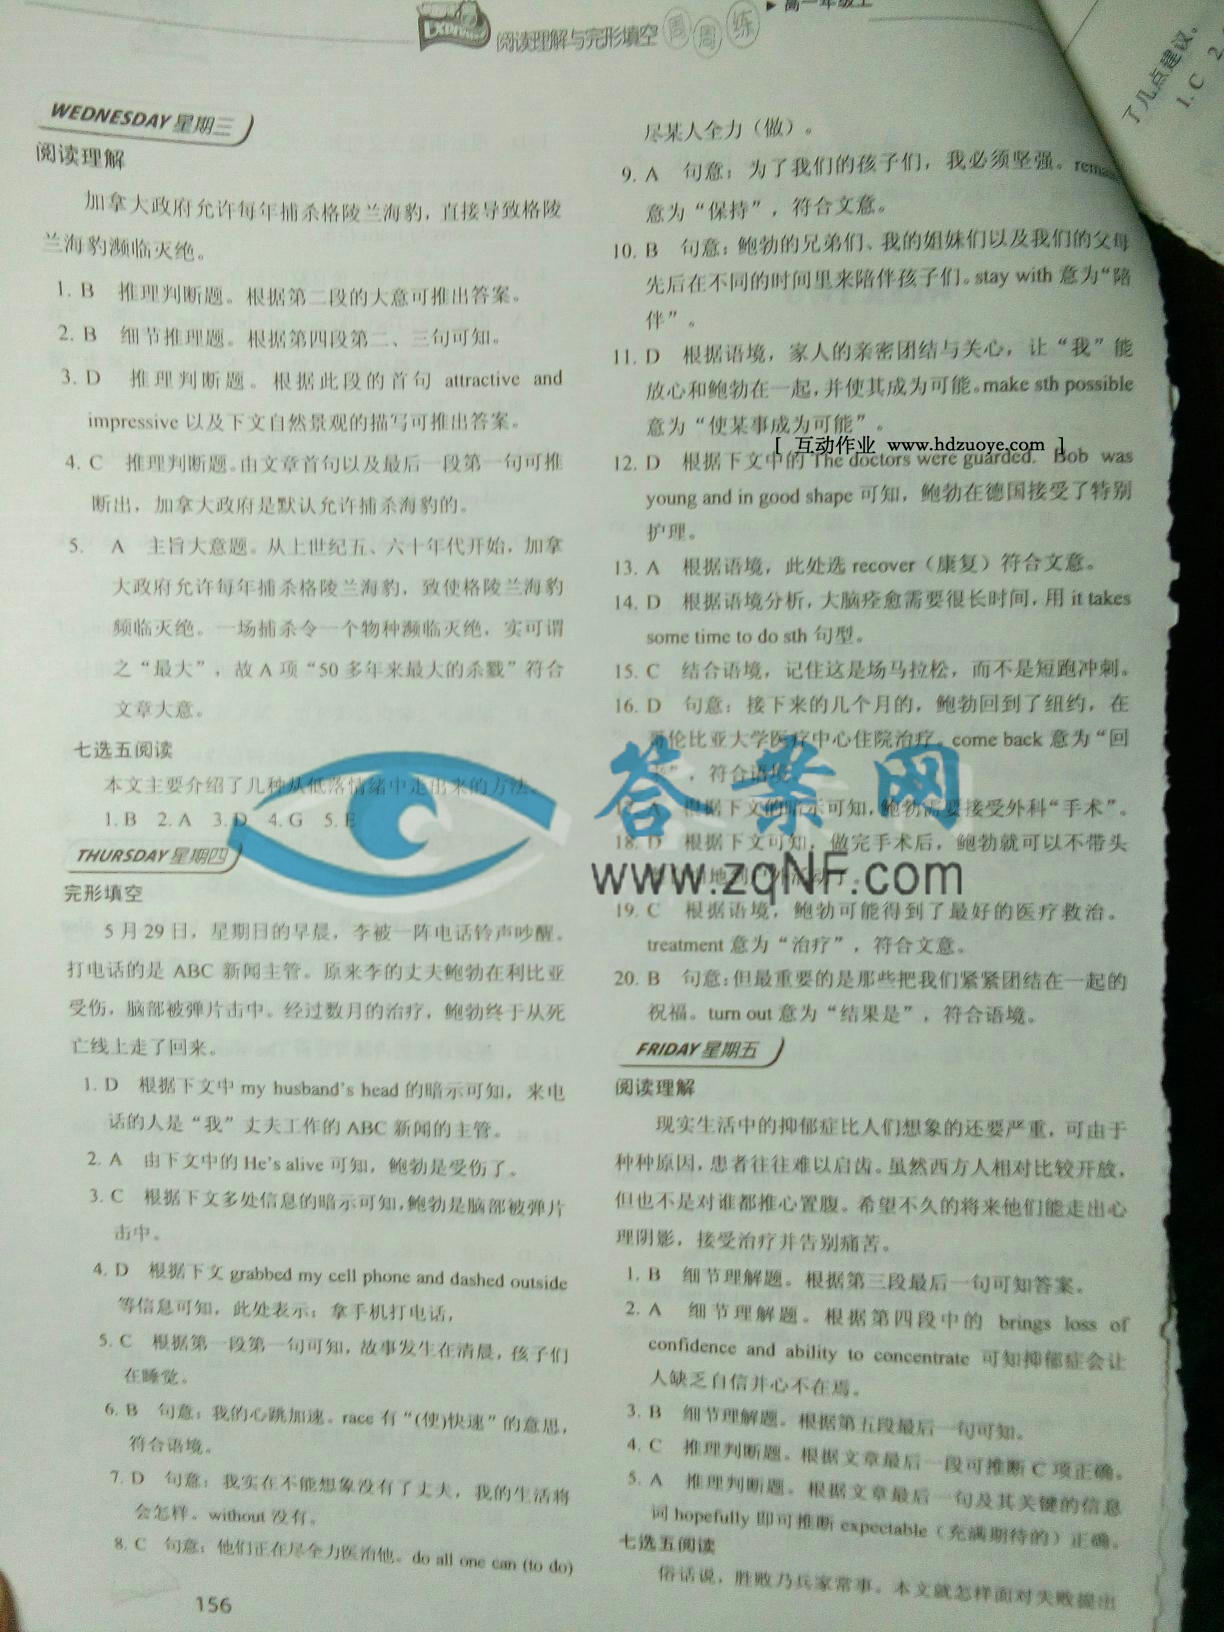 阅读理解与完形填空 周周练
高一年级上
了几点建议。
1. C 2.
WEDNESDAY 星期三
阅读理解
加拿大政府允许每年捕杀格陵兰海豹，直接导致格陵
兰海豹濒临灭绝。
1. B 推理判断题。根据第二段的大意可推出答案。
2. B 细节推理题。根据第四段第二、三句可知。
3. D 推理判断题。根据此段的首句 attractive and
impressive 以及下文自然景观的描写可推出答案。
4. C 推理判断题。由文章首句以及最后一段第一句可推
断出，加拿大政府是默认允许捕杀海豹的。
5. A 主旨大意题。从上世纪五、六十年代开始，加拿
大政府允许每年捕杀格陵兰海豹，致使格陵兰海豹
频临灭绝。一场捕杀令一个物种濒临灭绝，实可谓
之“最大”，故 A 项“50 多年来最大的杀戮”符合
文章大意。
七选五阅读
本文主要介绍了几种从低落情绪中走出来的方法。
1. B 2. A 3. D 4. G 5. E
THURSDAY 星期四
完形填空
5 月 29 日，星期日的早晨，李被一阵电话铃声吵醒。
打电话的是 ABC 新闻主管。原来李的丈夫鲍勃在利比亚
受伤，脑部被弹片击中。经过数月的治疗，鲍勃终于从死
亡线上走了回来。
1. D 根据下文中 my husband's head 的暗示可知，来电
话的人是“我”丈夫工作的 ABC 新闻的主管。
2. A 由下文中的 He's alive 可知，鲍勃是受伤了。
3. C 根据下文多处信息的暗示可知，鲍勃是脑部被弹片
击中。
4. D 根据下文 grabbed my cell phone and dashed outside
等信息可知，此处表示：拿手机打电话，
5. C 根据第一段第一句可知，故事发生在清晨，孩子们
在睡觉。
6. B 句意：我的心跳加速。race 有“(使)快速”的意思，
符合语境。
7. D 句意：我实在不能想象没有了丈夫，我的生活将
会怎样。without 没有。
8. C 句意：他们正在尽全力医治他。do all one can (to do)
156
尽某人全力（做）。
9. A 句意：为了我们的孩子们，我必须坚强。
意为“保持”，符合文意。
10. B 句意：鲍勃的兄弟们、我的姐妹们以及我们的父母
先后在不同的时间里来陪伴孩子们。stay with 意为“陪
伴”。
11. D 根据语境，家人的亲密团结与关心，让“我”能
放心和鲍勃在一起，并使其成为可能。make sth possible
意为“使某事成为可能”。
[ 互动作业 www.hdzuoye.com ]
12. D 根据下文中的 The doctors were guarded. Bob was
young and in good shape 可知，鲍勃在德国接受了特别
护理。
13. A 根据语境，此处选 recover（康复）符合文意。
14. D 根据语境分析，大脑痊愈需要很长时间，用 it takes
some time to do sth 句型。
15. C 结合语境，记住这是场马拉松，而不是短跑冲刺。
16. D 句意：接下来的几个月的，鲍勃回到了纽约，在
哥伦比亚大学医疗中心住院治疗。come back 意为“回
”，符合语境。
17. A 根据下文的暗示可知，鲍勃需要接受外科“手术”。
18. D 根据下文可知，做完手术后，鲍勃就可以不带头
答案网
www.zqNF.com
19. C 根据语境，鲍勃可能得到了最好的医疗救治。
treatment 意为“治疗”，符合文意。
20. B 句意：但最重要的是那些把我们紧紧团结在一起的
祝福。turn out 意为“结果是”，符合语境。
FRIDAY 星期五
阅读理解
现实生活中的抑郁症比人们想象的还要严重，可由于
种种原因，患者往往难以启齿。虽然西方人相对比较开放，
但也不是对谁都推心置腹。希望不久的将来他们能走出心
理阴影，接受治疗并告别痛苦。
1. B 细节理解题。根据第三段最后一句可知答案。
2. A 细节理解题。根据第四段中的 brings loss of
confidence and ability to concentrate 可知抑郁症会让
人缺乏自信并心不在焉。
3. B 细节理解题。根据第五段最后一句可知。
4. C 推理判断题。根据文章最后一段可推断 C 项正确。
5. A 推理判断题。根据文章最后一句及其关键的信息
词 hopefully 即可推断 expectable（充满期待的）正确。
七选五阅读
俗话说，胜败乃兵家常事。本文就怎样面对失败提出